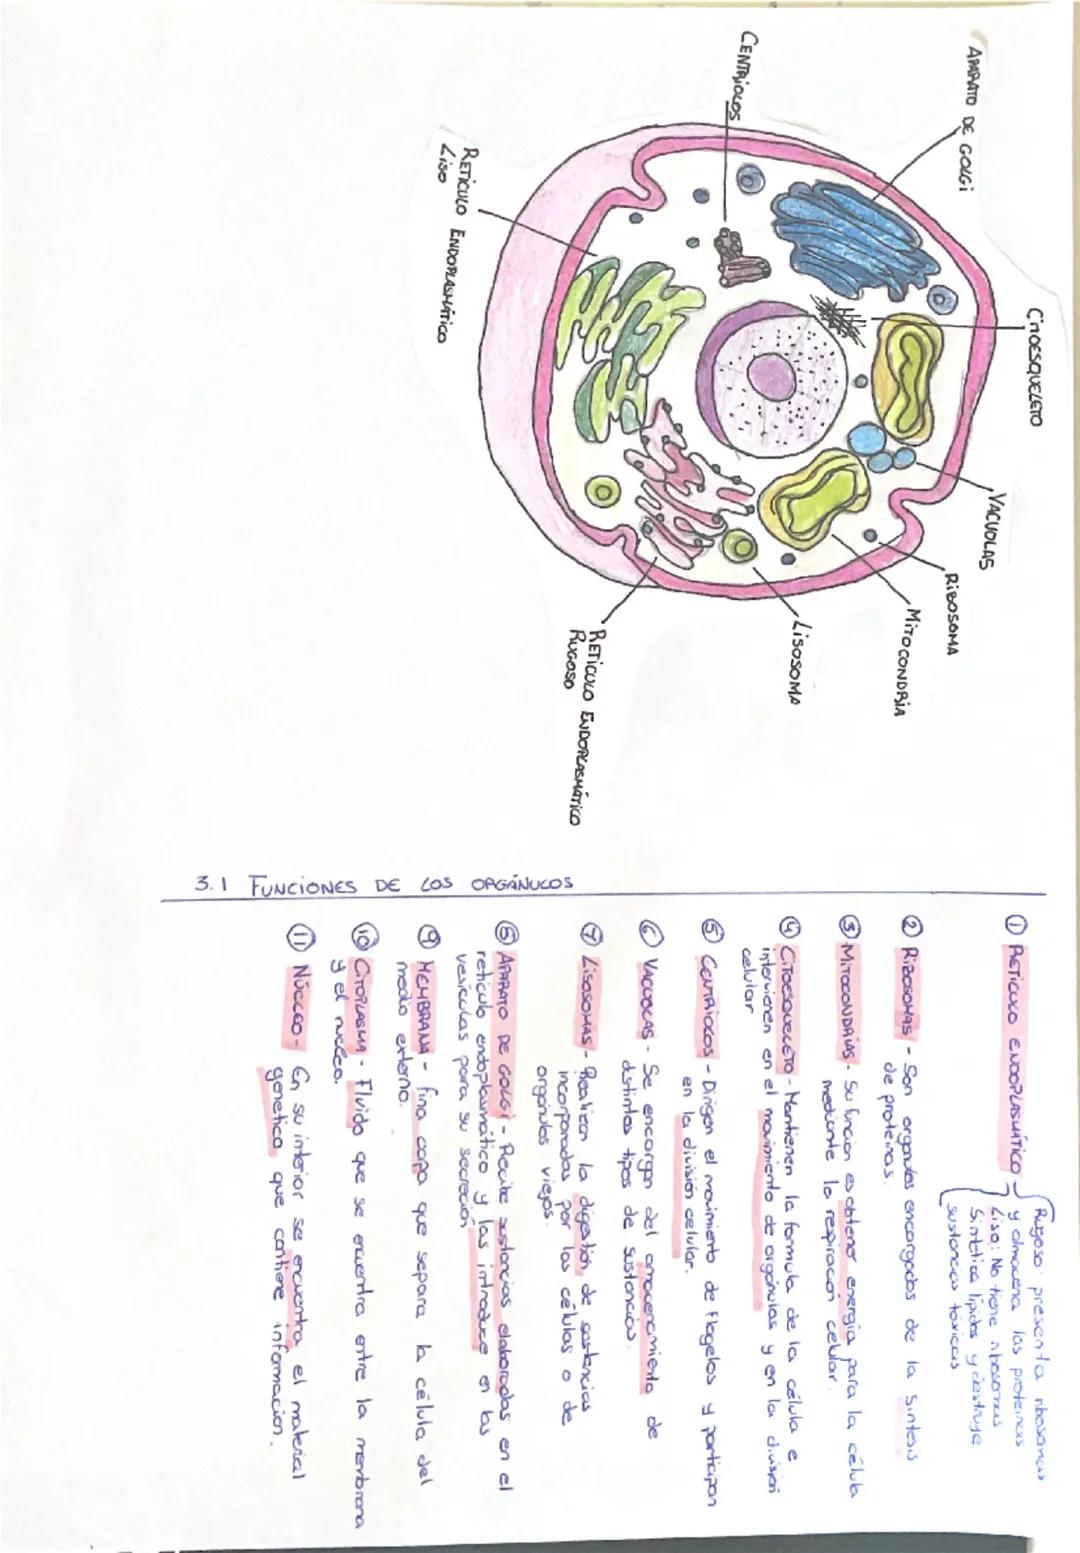 APARATO DE GOLGI
CITOESQUELETO
VACUOLAS
RIBOSOMA
MITOCONDRIA
LISOSOMA
RETICULO ENDOPLASMÁTICO
RUGOSO
CENTRIOLOS
RETICULO ENDOPLASMÁTICO
LISO
3.1 FUNCIONES DE LOS ORGÁNULOS
① RETICULO ENDOPLASMÁTICO - Rugoso: presenta ribosomas
y almacena las proteinas
Liso: No tiene ribosomas
Sintetiza lipidos y destruye
sustancias tóxicas
② RIBOSOMAS - Son organulos encargados de la sintesis
de proteinas.
③ MITOCONDRIAS - Su funcion es obtener energía para la célula
mediante la respiración celular.
④ CITOESQUELETO - Mantienen la formula de la célula e
intervienen en el movimiento de orgánulos y en la division
celular
⑤ CENTRIOLOS - Dirigen el movimiento de flagelos y participan
en la división celular.
⑥ VACUOLAS - Se encargan del amacenamiento de
distintos tipos de sustancias.
⑦ LISOSOMAS - Realizan la digestión de sustancias
incorporadas por las células o de
organulos viejos.
⑧ APARATO DE GOLGI - Recibe sustancias elaboradas en el
reticulo endoplasmático y las introduce en las
vesículas para su secreción
⑨ MEMBRANA - fina capa que separa la célula del
medio externo.
⑩ CITOPLASMA - Fluido que se encuentra entre la membrana
y el nucleo.
⑪ NÚCLEO - En su interior se encuentra el material
genetico que contiene informacion.